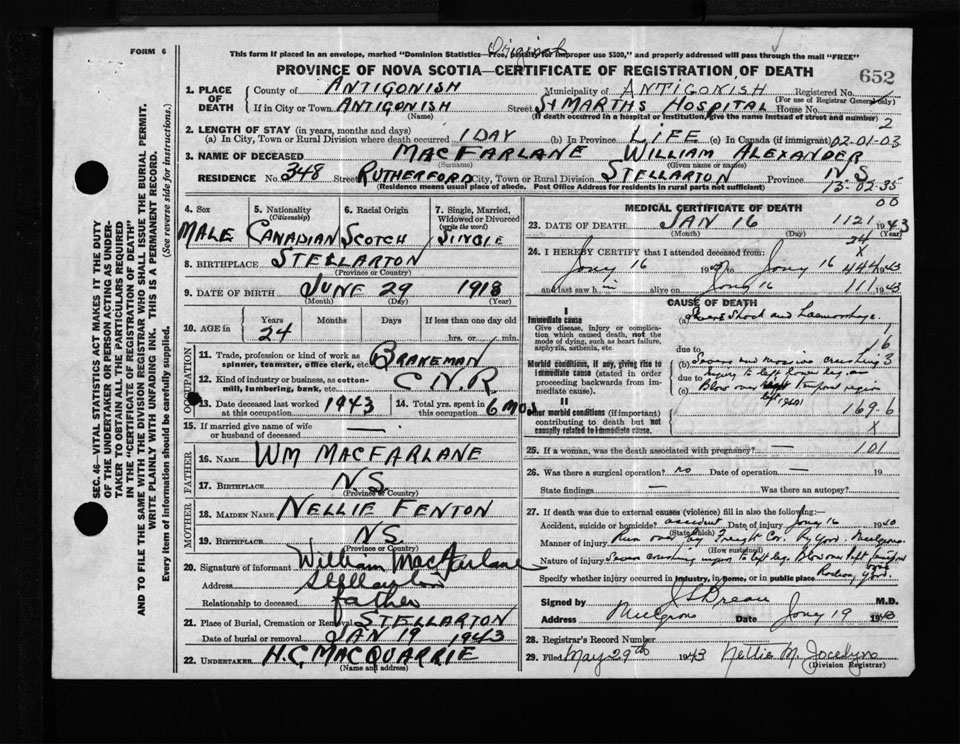 FORM 6
Original
This form if placed in an envelope, marked "Dominion Statistics—Free, (Penalty for improper use $300," and properly addressed will pass through the mail "FREE"
PROVINCE OF NOVA SCOTIA—CERTIFICATE OF REGISTRATION OF DEATH
652
1. PLACE OF DEATH
County of ANTIGONISH Municipality of ANTIGONISH Registered No.
(For use of Registrar General only)
If in City or Town ANTIGONISH Street St MARTHS HOSPITAL House No.
(Name) (If death occurred in a hospital or institution, give the name instead of street and number)
2
2. LENGTH OF STAY (in years, months and days)
(a) In City, Town or Rural Division where death occurred 1 DAY (b) In Province LIFE (c) In Canada (if immigrant) 02-01-03
3. NAME OF DECEASED MACFARLANE WILLIAM ALEXANDER
(Surname) (Given name or names)
RESIDENCE No. 348 Street RUTHERFORD City, Town or Rural Division STELLARTON Province NS
(Residence means usual place of abode. Post Office Address for residents in rural parts not sufficient)
13-02-35
00
4. Sex
MALE
5. Nationality (Citizenship)
CANADIAN
6. Racial Origin
SCOTCH
7. Single, Married, Widowed or Divorced (write the word)
SINGLE
8. BIRTHPLACE STELLARTON
(Province or Country)
9. DATE OF BIRTH JUNE 29 1918
(Month) (Day) (Year)
10. AGE Years Months Days If less than one day old
24 hrs. or min.
OCCUPATION
11. Trade, profession or kind of work as spinner, teamster, office clerk, etc. BRAKEMAN
12. Kind of industry or business, as cotton-mill, lumbering, bank, etc. C.N.R
13. Date deceased last worked at this occupation 1943
14. Total yrs. spent in this occupation 6 MOS
15. If married give name of wife or husband of deceased —
FATHER
16. NAME WM MACFARLANE
17. BIRTHPLACE N.S.
(Province or Country)
MOTHER
18. MAIDEN NAME NELLIE FENTON
19. BIRTHPLACE N.S.
(Province or Country)
20. Signature of informant William MacFarlane
Address Stellarton
Relationship to deceased father
21. Place of Burial, Cremation or Removal STELLARTON
Date of burial or removal JAN 19 1943
22. UNDERTAKER H.C. MACQUARRIE
(Name and address)
MEDICAL CERTIFICATE OF DEATH
23. DATE OF DEATH JAN 16 1121 1943
(Month) (Day) (Year)
24
X
24. I HEREBY CERTIFY that I attended deceased from:
Jany 16 to Jany 16 444 1943
and last saw h im alive on Jany 16 111 1943
CAUSE OF DEATH
I
Immediate cause
Give disease, injury or complication which caused death, not the mode of dying, such as heart failure, asphyxia, asthenia, etc.
(a) Severe Shock and Haemorrhage.
due to 16
Morbid conditions, if any, giving rise to immediate cause (stated in order proceeding backwards from immediate cause).
(b) Severe and massive crushing 3
due to injury to left lower leg, and
(c) Blow over left temporal region
II
Other morbid conditions (if important) contributing to death but not causally related to immediate cause.
169-6
X
25. If a woman, was the death associated with pregnancy? — 101
26. Was there a surgical operation? no Date of operation — 19
State findings — Was there an autopsy?
27. If death was due to external causes (violence) fill in also the following:—
Accident, suicide or homicide? accident Date of injury Jany 16 1940
(State which)
Manner of injury Run over by Freight Car. Ry Yard. Mulgrave
(How sustained)
Nature of injury Severe crushing injury to left leg. Blow over left temporal
Specify whether injury occurred in industry, in home, or in public place Railway Yard.
Signed by M.D.
Address Mulgrave Date Jany 19 1943
28. Registrar's Record Number
29. Filed May 29th 1943 Nellie M. Jocelyn
(Division Registrar)
SEC. 46—VITAL STATISTICS ACT MAKES IT THE DUTY
OF THE UNDERTAKER OR PERSON ACTING AS UNDER-
TAKER TO OBTAIN ALL THE PARTICULARS REQUIRED
IN THE "CERTIFICATE OF REGISTRATION OF DEATH"
AND TO FILE THE SAME WITH THE DIVISION REGISTRAR WHO SHALL ISSUE THE BURIAL PERMIT.
WRITE PLAINLY WITH UNFADING INK. THIS IS A PERMANENT RECORD.
Every item of information should be carefully supplied. (See reverse side for instructions.)